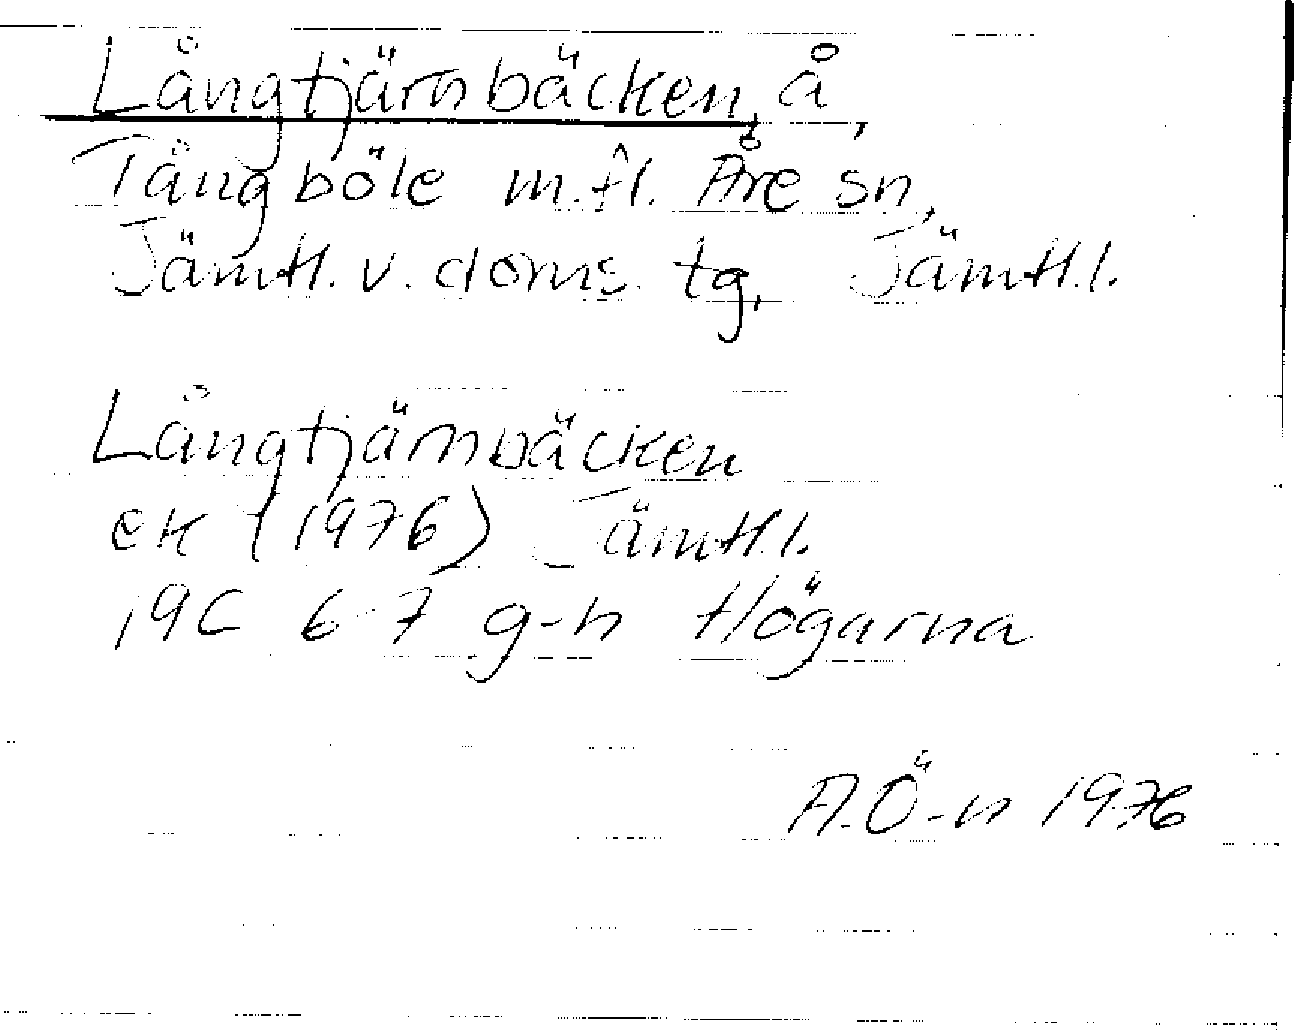 Långtjärnbäcken, å,
Tångböle m.fl. Åre sn,
Jämtl. v. doms. tg, Jämtl.l.
Långtjärnbäcken
ek (1976) Jämtl.l.
19C 6-7 g-h Högarna
A.Ö-n 1976